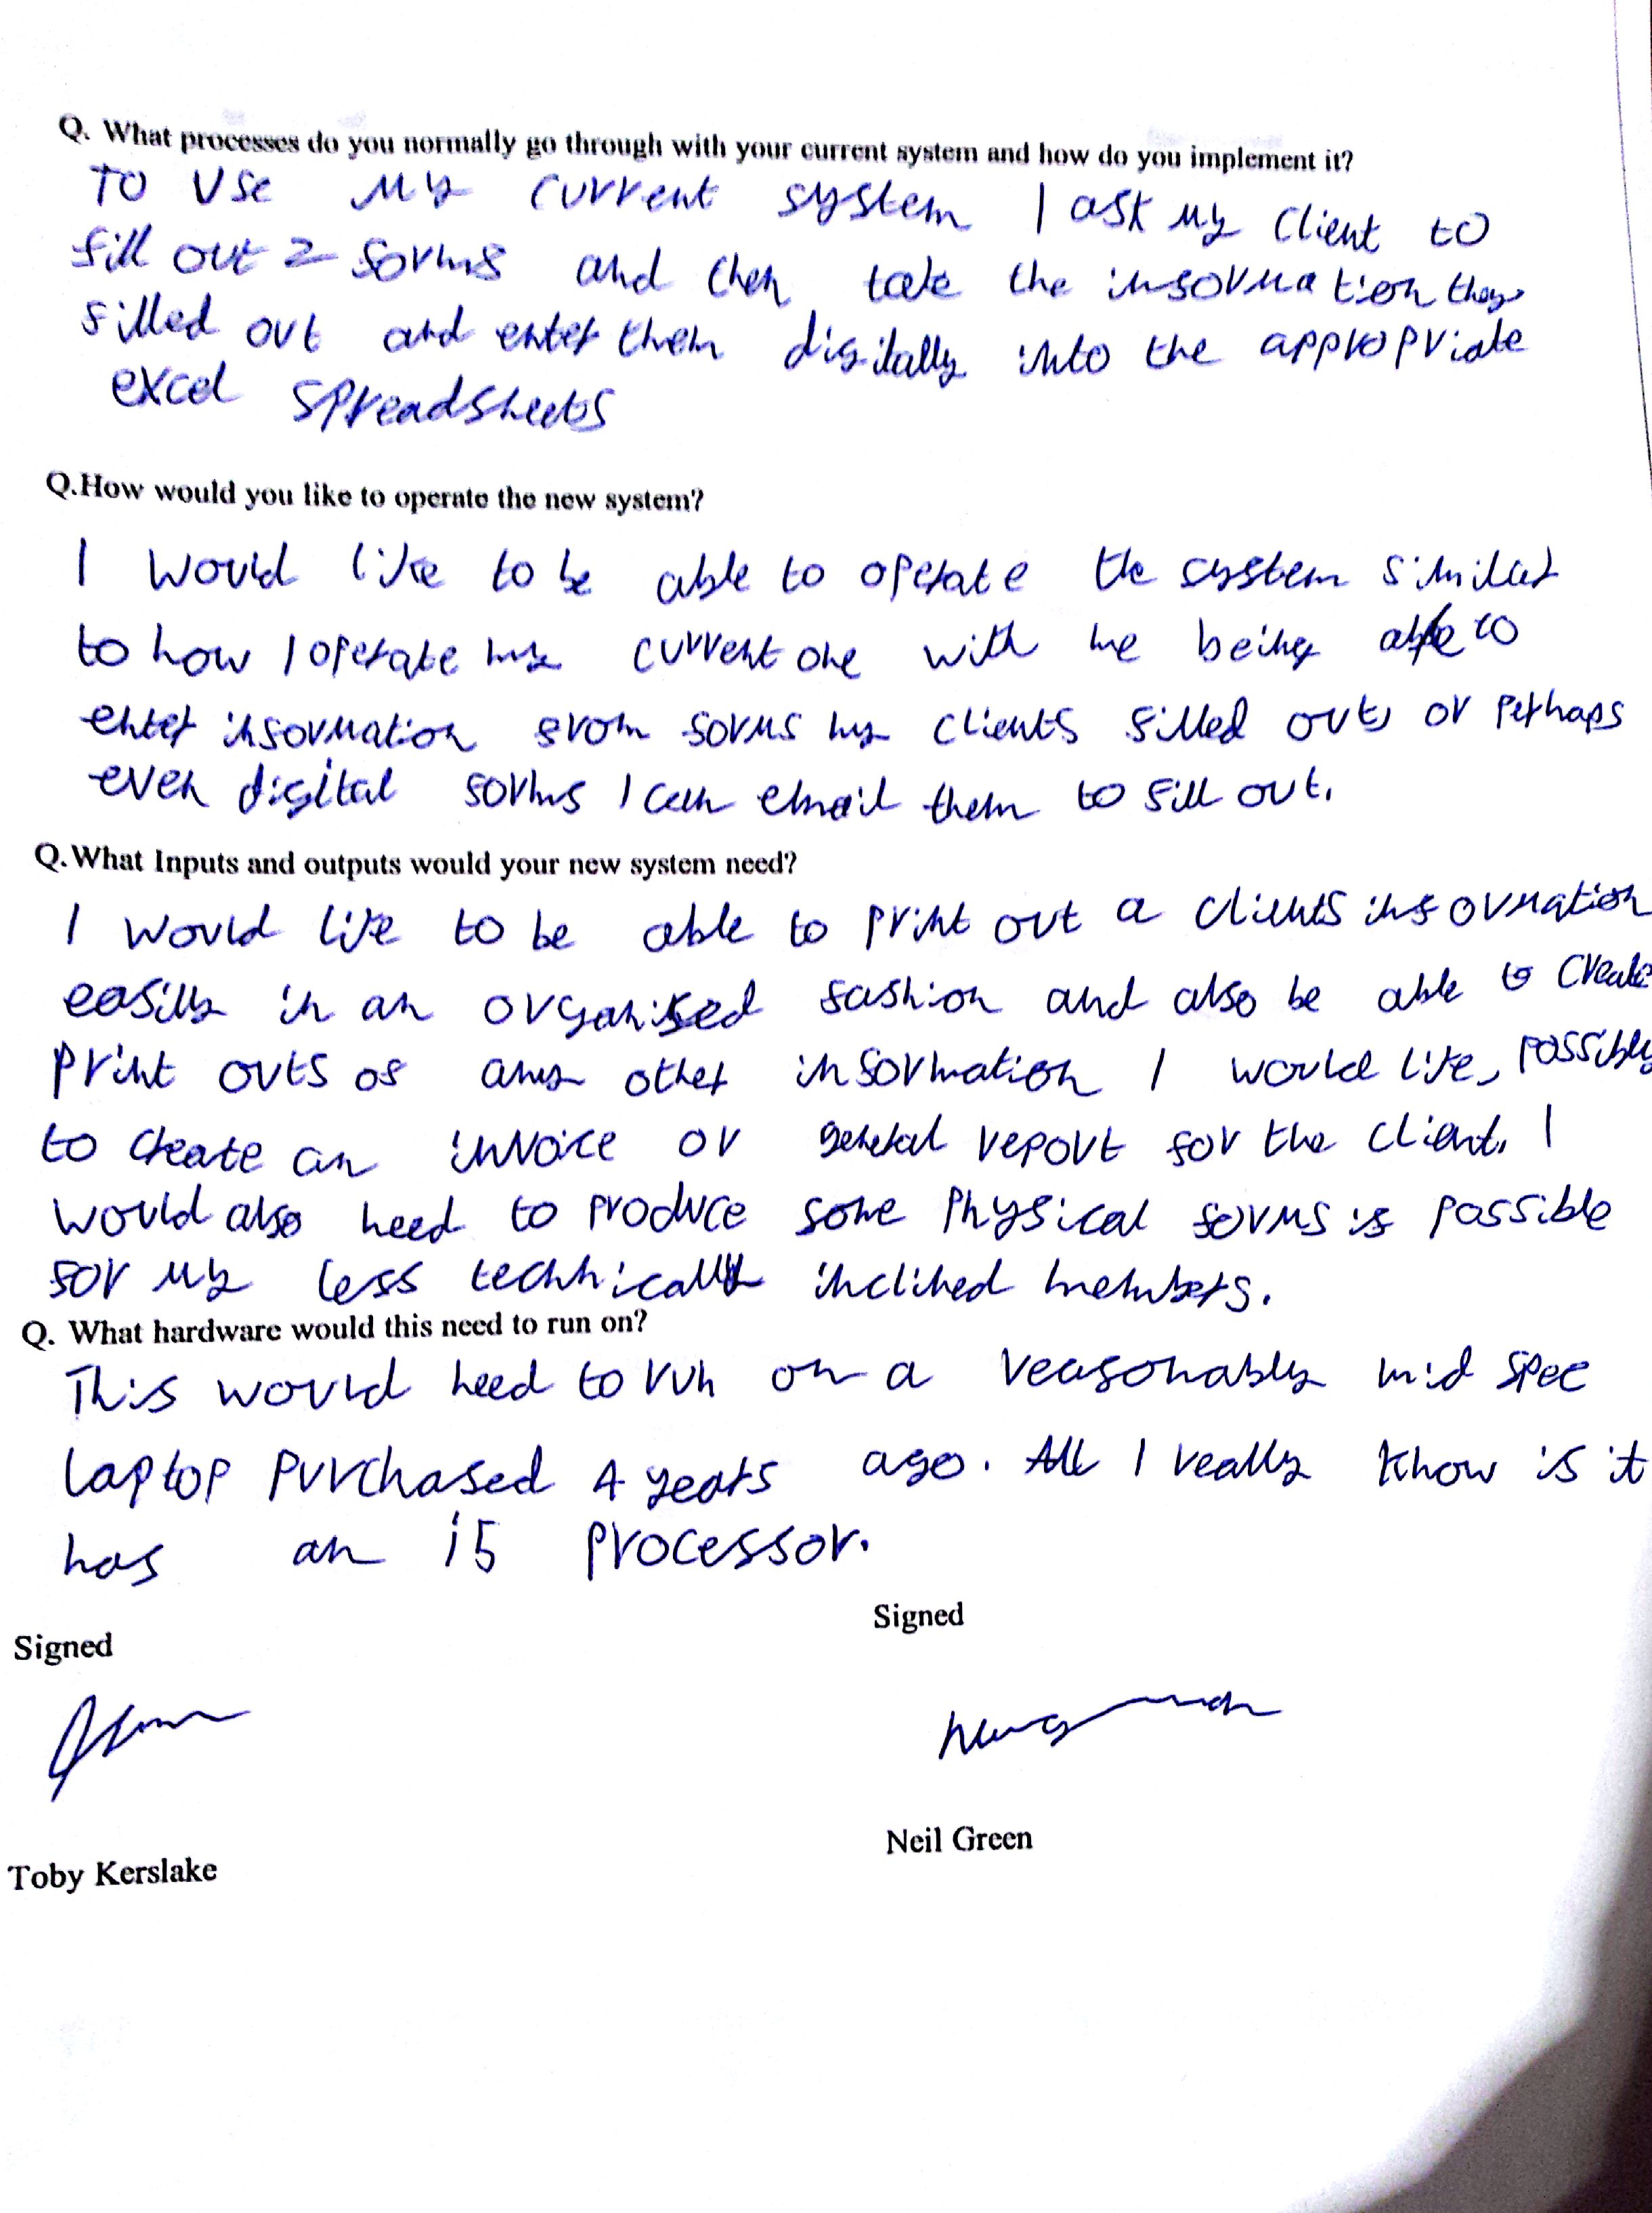 Q. What processes do you normally go through with your current system and how do you implement it?
To use my current system I ask my client to
fill out 2 forms and then take the information they
filled out and enter them digitally into the appropriate
excel spreadsheets
Q.How would you like to operate the new system?
I would like to be able to operate the system similar
to how I operate my current one with me being able to
enter information from forms my clients filled out, or perhaps
even digital forms I can email them to fill out.
Q.What Inputs and outputs would your new system need?
I would like to be able to print out a clients information
easily in an organised fashion and also be able to create
print outs of any other information I would like, possibly
to create an invoice or general report for the client. I
would also need to produce some physical forms if possible
for my less technically inclined members.
Q. What hardware would this need to run on?
This would need to run on a reasonably mid spec
laptop purchased 4 years ago. All I really know is it
has an i5 processor.
Signed
Signed
Neil Green
Toby Kerslake